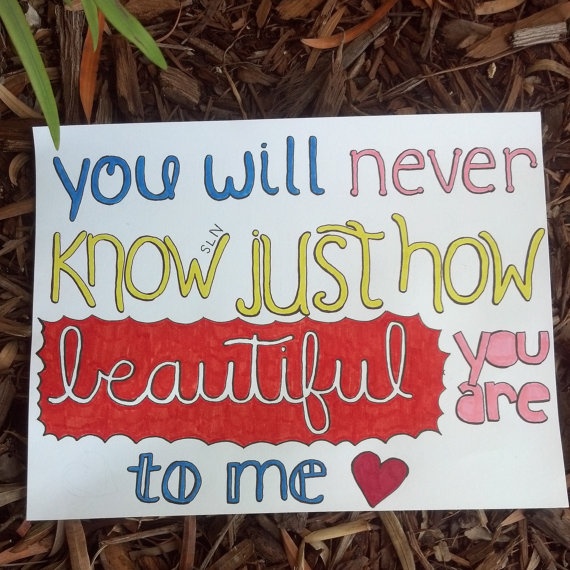 you will never
know just how
SLN
beautiful you are
to me